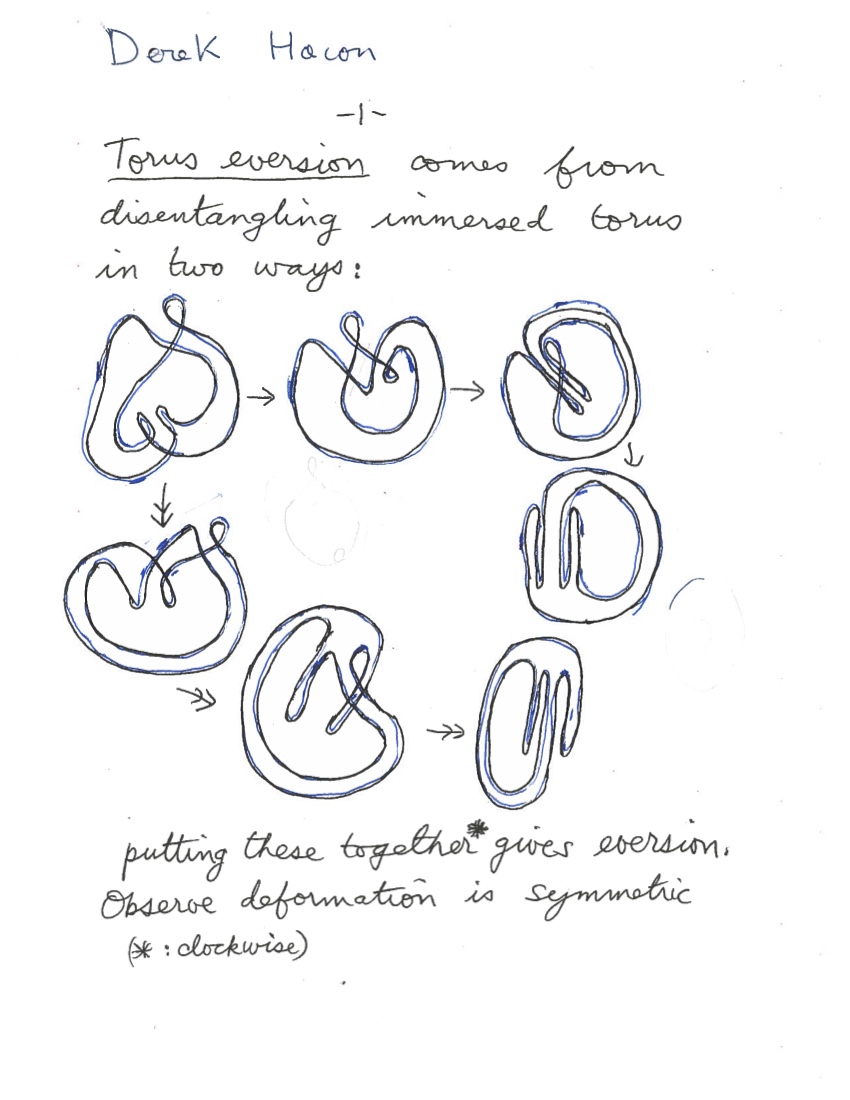 Derek Hacon
-1-
Torus eversion comes from
disentangling immersed torus
in two ways:
putting these together* gives eversion.
Observe deformation is symmetric
(* : clockwise)